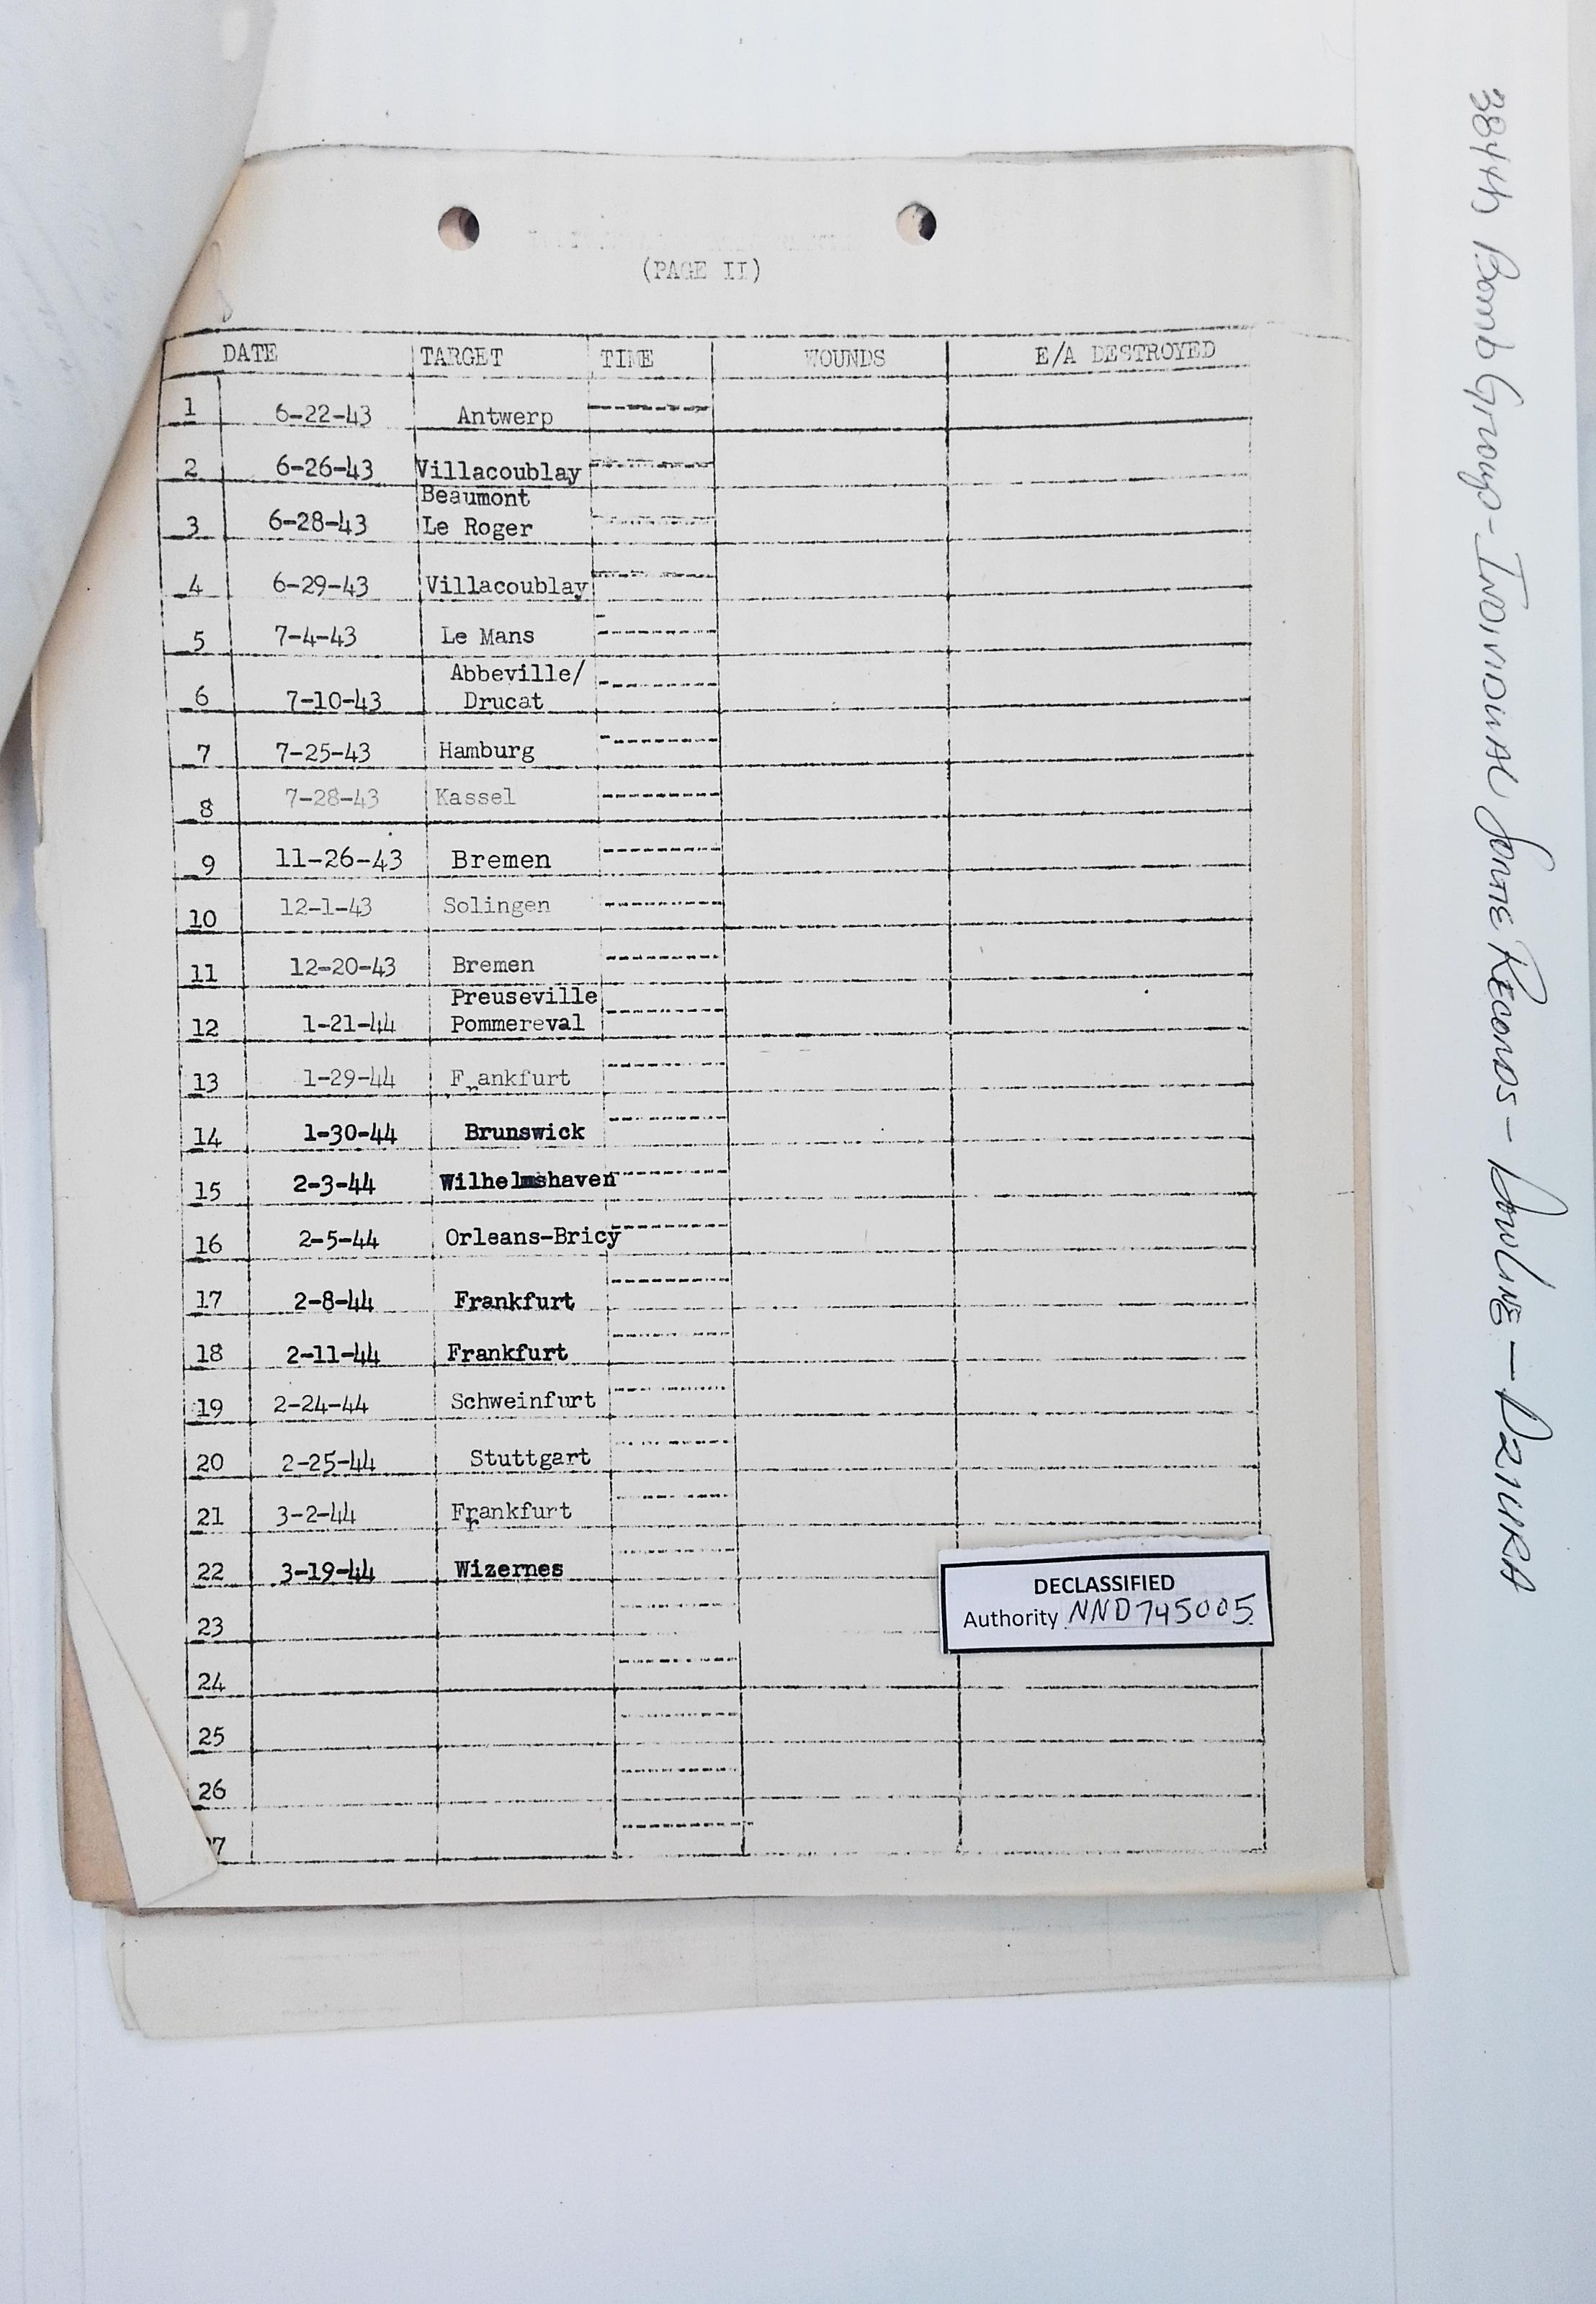 (PAGE II)
DATE TARGET TIME WOUNDS E/A DESTROYED
1 6-22-43 Antwerp
2 6-26-43 Villacoublay
Beaumont
3 6-28-43 Le Roger
4 6-29-43 Villacoublay
5 7-4-43 Le Mans
Abbeville/
6 7-10-43 Drucat
7 7-25-43 Hamburg
8 7-28-43 Kassel
9 11-26-43 Bremen
10 12-1-43 Solingen
11 12-20-43 Bremen
Preuseville
12 1-21-44 Pommereval
13 1-29-44 Frankfurt
14 1-30-44 Brunswick
15 2-3-44 Wilhelmshaven
16 2-5-44 Orleans-Bricy
17 2-8-44 Frankfurt
18 2-11-44 Frankfurt
19 2-24-44 Schweinfurt
20 2-25-44 Stuttgart
21 3-2-44 Frankfurt
22 3-19-44 Wizernes
23
24
25
26
7
DECLASSIFIED
Authority NND 745005
384th Bomb Group - INDIVIDUAL SORTIE RECORDS - DOWLING - DZIURA